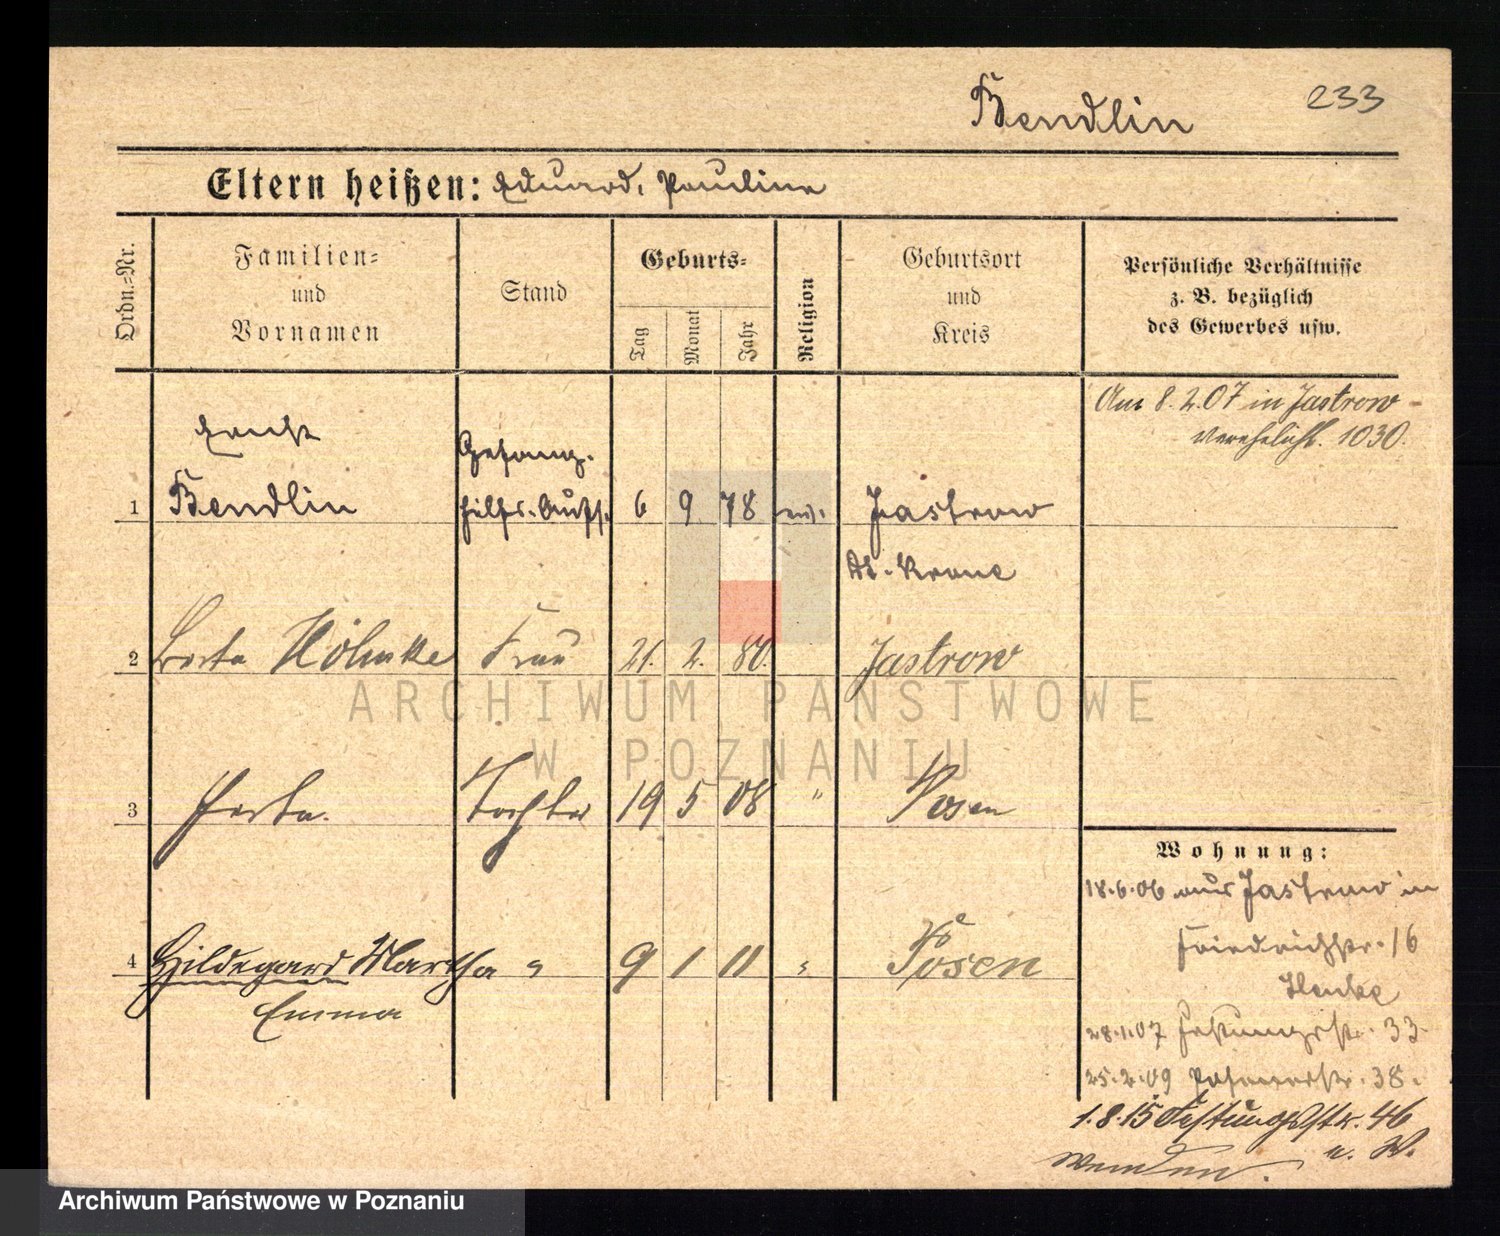 Bendlin 233
Eltern heißen: Eduard, Pauline
Ordn.-Nr.
Familien-
und
Vornamen
Stand
Geburts-
Tag
Monat
Jahr
Religion
Geburtsort
und
Kreis
Persönliche Verhältnisse
z. B. bezüglich
des Gewerbes usw.
Am 8.2.07 in Jastrow -
verehelicht. 1030.
Ernst Gefang.
1 Bendlin Hilfs-Aufs. 6 9 78 ev. Jastrow
Dt.-Krone
2 Berta Höhnke Frau 21. 2. 80. Jastrow
ARCHIWUM PAŃSTWOWE
W POZNANIU
3 Herta. Tochter 19 5 08 " Posen
Wohnung:
18.6.06 aus Jastrow in
Friedrichstr. 16
Henke
4 Hildegard Martha " 9 1 11 " Posen
Emma
28.1.07 Festungsstr. 33
25.2.09 Posenerstr. 38.
1.8.15 Festungsstr. 46
n. W.
wenden.
Archiwum Państwowe w Poznaniu